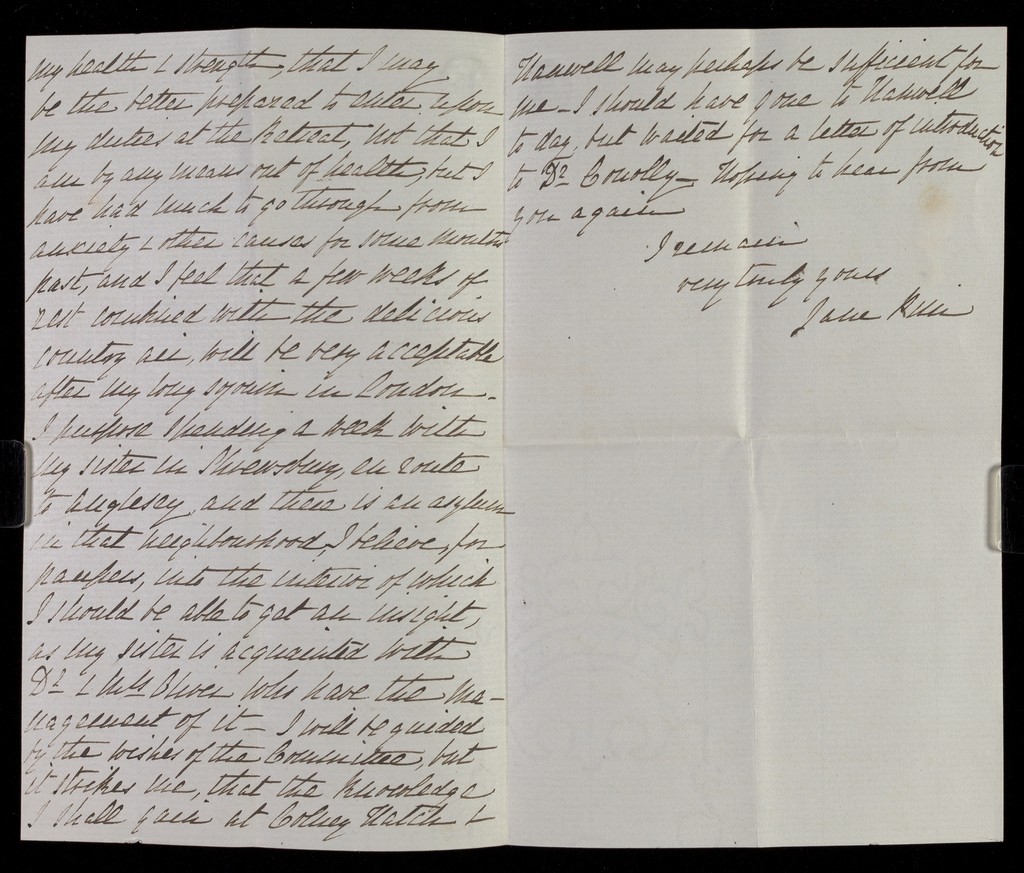 my health & strength, that I may
be the better prepared to enter upon
my duties at the Retreat, not that I
am by any means out of health, but I
have had much to go through from
anxiety & other causes for some months
past, and I feel that a few weeks of
rest combined with the delicious
country air, will be very acceptable
after my long sojourn in London -
I purpose spending a week with
my sister in Shrewsbury, en route
to Anglesey, and there is an asylum
in that neighbourhood, I believe, for
paupers, into the interior of which
I should be able to get an insight,
as my sister is acquainted with
Dr & Mrs Oliver who have the ma-
nagement of it - I will be guided
by the wishes of the Committee, but
it strikes me, that the knowledge
I shall gain at Colney Hatch &
Hanwell may perhaps be sufficient for
me - I should have gone to Hanwell
to day, but waited for a letter of introduction
to Dr Conolly - Hoping to hear from
you again
I remain
very truly yours
Jane